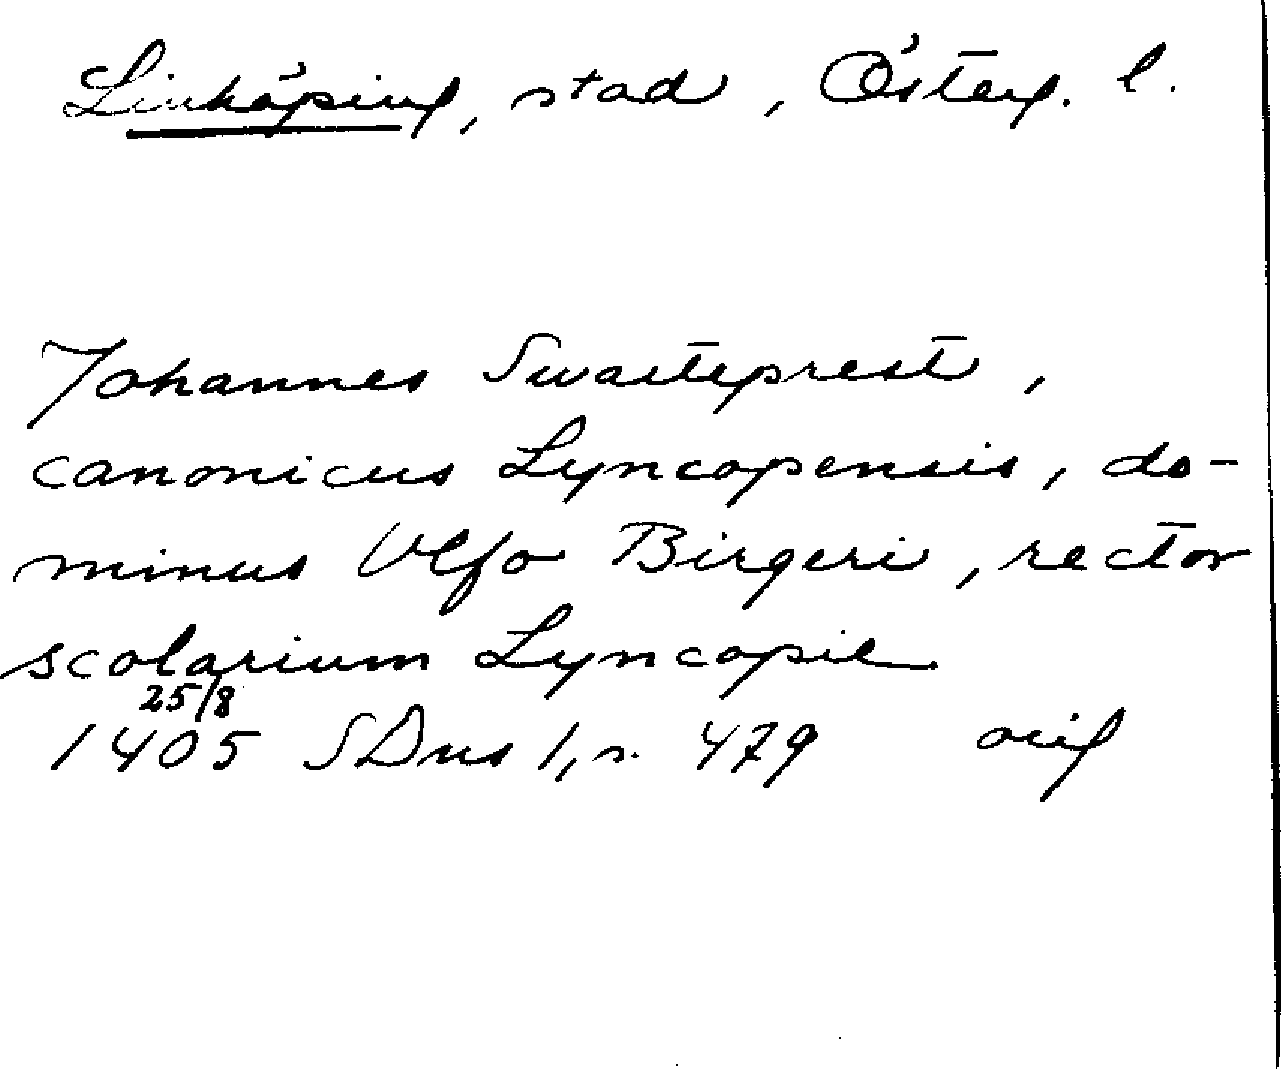 Linköping, stad, Österg. l.
Johannes Swarteprest,
canonicus Lyncopensis, do-
minus Vlfo Birgeri, rector
scolarium Lyncopie
25/8
1405 SDns 1, n. 479 orig